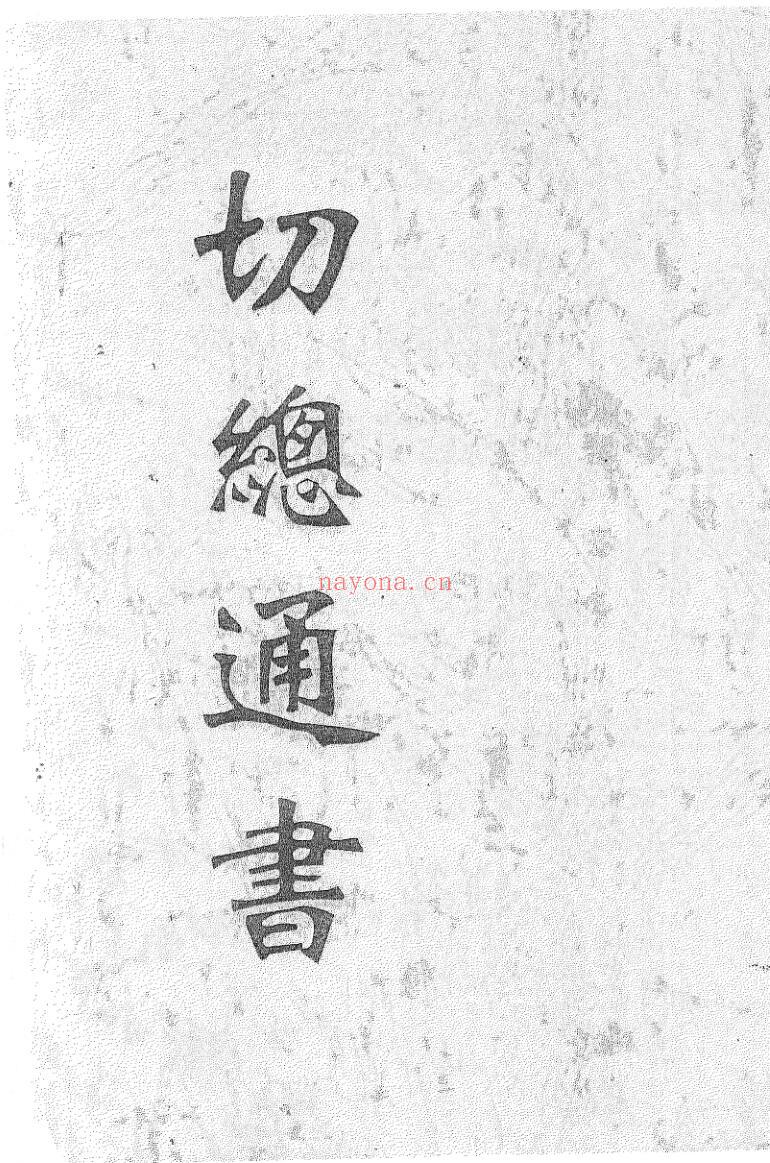 切總通書
nayona.cn